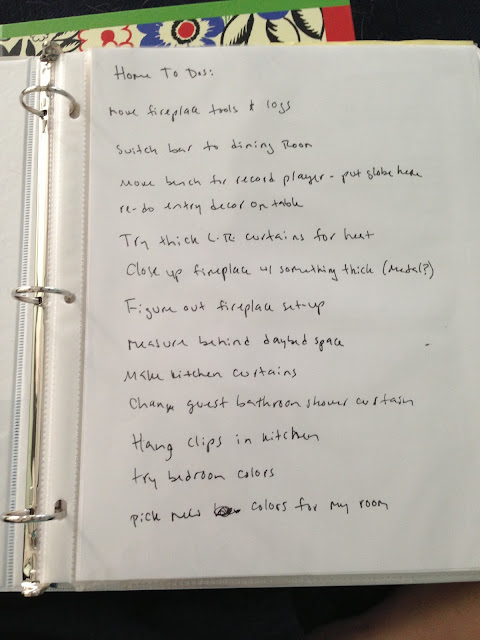 Home To Dos:
move fireplace tools & logs
Switch bar to dining Room
Move bench for record player - put globe here
re-do entry decor on table
Try thick L.R. curtains for heat
Close up fireplace w/ something thick (metal?)
Figure out fireplace set-up
Measure behind daybed space
Make kitchen curtains
Change guest bathroom shower curtain
Hang clips in kitchen
try bedroom colors
pick new colors for my room